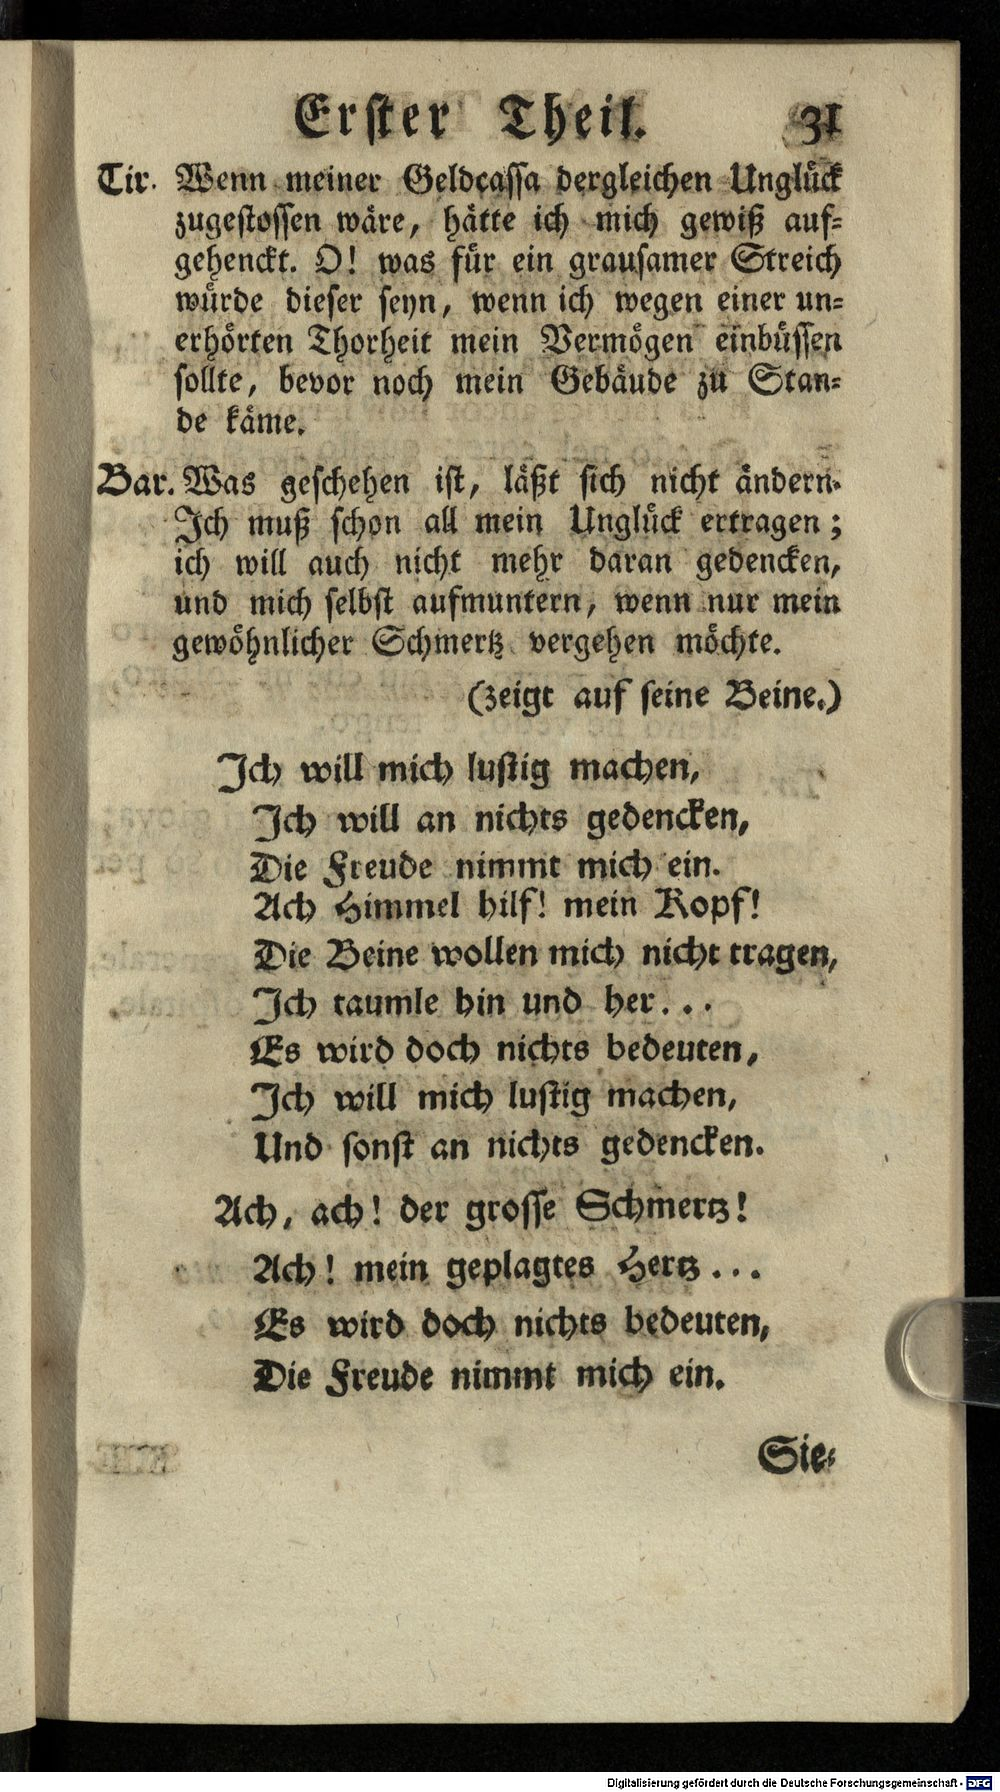 Erster Theil. 31
Tir. Wenn meiner Geldcassa dergleichen Unglück
zugestossen wäre, hätte ich mich gewiß auf-
gehenckt. O! was für ein grausamer Streich
würde dieser seyn, wenn ich wegen einer un-
erhörten Thorheit mein Vermögen einbüssen
sollte, bevor noch mein Gebäude zu Stan-
de käme.
Bar. Was geschehen ist, läßt sich nicht ändern.
Ich muß schon all mein Unglück ertragen;
ich will auch nicht mehr daran gedencken,
und mich selbst aufmuntern, wenn nur mein
gewöhnlicher Schmertz vergehen möchte.
(zeigt auf seine Beine.)
Ich will mich lustig machen,
Ich will an nichts gedencken,
Die Freude nimmt mich ein.
Ach Himmel hilf! mein Kopf!
Die Beine wollen mich nicht tragen,
Ich taumle hin und her...
Es wird doch nichts bedeuten,
Ich will mich lustig machen,
Und sonst an nichts gedencken.
Ach, ach! der grosse Schmertz!
Ach! mein geplagtes Hertz...
Es wird doch nichts bedeuten,
Die Freude nimmt mich ein.
Sie-
Digitalisierung gefördert durch die Deutsche Forschungsgemeinschaft - DFG